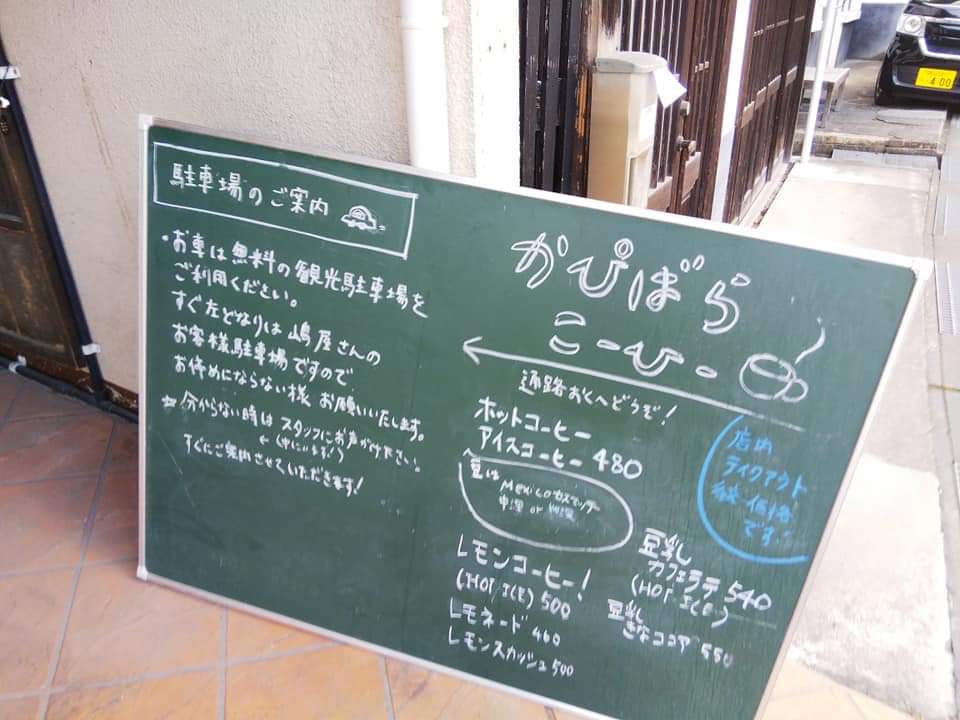 駐車場のご案内
・お車は無料の観光駐車場を
ご利用ください。
すぐ左どなりは嶋屋さんの
お客様駐車場ですので
お停めにならない様お願いいたします。
※分からない時はスタッフにお声がけ下さい。
←(中にいます!)
すぐにご案内させていただきます!
かぴばら
こーひー
通路おくへどうぞ!
ホットコーヒー
アイスコーヒー 480
豆は
Mexico
中深 or
レモンコーヒー!
(HOT ICE) 500
レモネード 460
レモンスカッシュ 500
店内
テイクアウト
価格
です
豆乳
カフェラテ 540
(HOT ICE)
豆乳
きなココア 550
・400